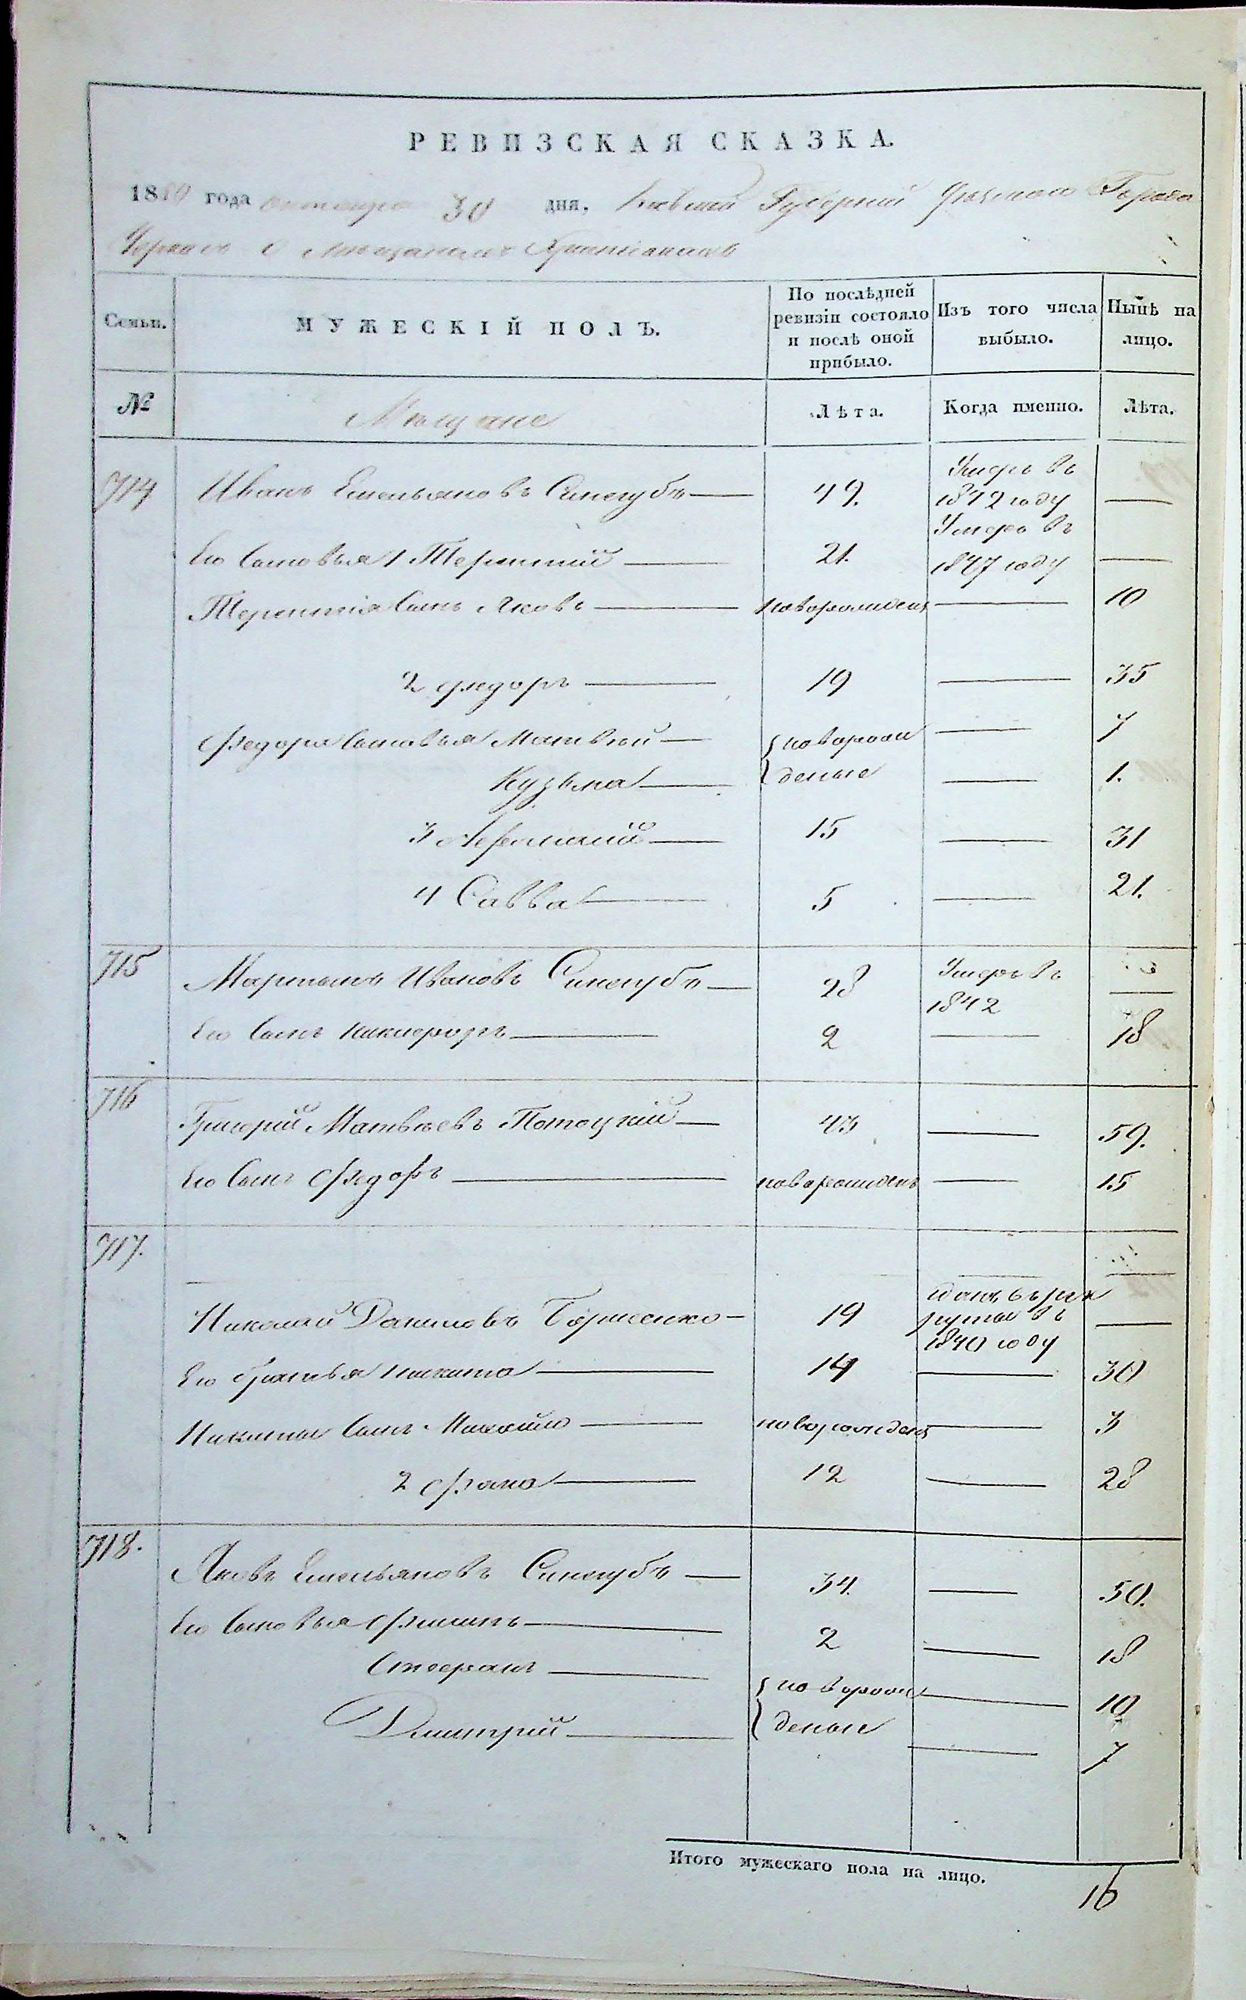 РЕВИЗСКАЯ СКАЗКА.
1850 года октября 30 дня, Кіевской Губерніи Уѣзнаго Города
Черкасъ о Мѣщанахъ Христіанахъ
Семьи.
МУЖЕСКІЙ ПОЛЪ.
По послѣдней ревизіи состояло и послѣ оной прибыло.
Изъ того числа выбыло.
Нынѣ на лицо.
№
Мѣщане
Лѣта.
Когда именно.
Лѣта.
714 Иванъ Емельяновъ Синегубъ — 49. Умеръ въ 1842 году —
Его Сыновья 1 Терентій — 21. Умеръ въ 1847 году —
Терентія Сынъ Яковъ — новорожденъ — 10
2 Федоръ — 19 — 35
Федора Сыновья Матвѣй — новорож — 7
Кузьма — денные — 1.
3 — 15 — 31
4 Савва — 5 — 21.
715 Мартынъ Ивановъ Синегубъ — 28 Умеръ въ 1842 —
Его Сынъ Никифоръ — 2 — 18
716 Григорій Матвѣевъ Потоцкій — 43 — 59.
Его Сынъ Федоръ — новорожденъ — 15
717.
Николай Даниловъ — 19 въ рекруты въ 1840 году —
Его братья Никита — 14 — 30
Никиты Сынъ Михайло — новорожденъ — 3
2 Фома — 12 — 28
718. Яковъ Емельяновъ Синегубъ — 34. — 50.
Его Сыновья Филипъ — 2 — 18
Стефанъ — новорож — 10
Дмитрій — денные — 7
Итого мужескаго пола на лицо. 16